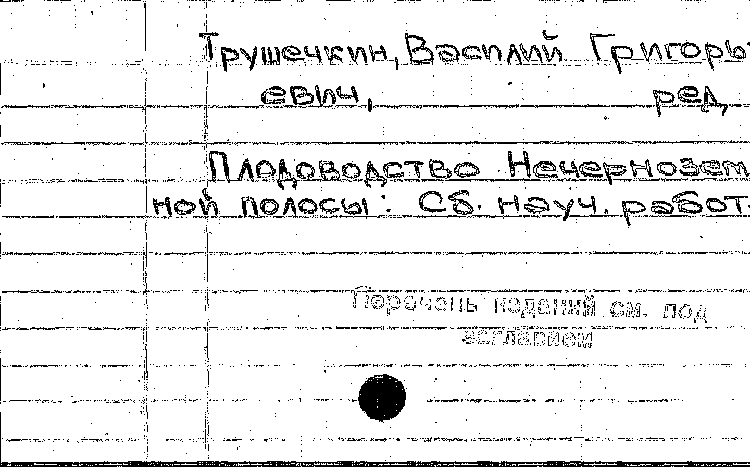 Трушечкин, Василий Григорь-
евич, ред.
Плодоводство Нечернозем-
ной полосы: Сб. науч. работ.
Перечень изданий см. под
заглавием